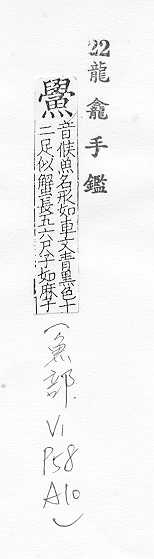 22 龍龕手鑑
鱟
音候魚名形如車文青黑色十
二足似蟹長五六尺子如麻子
(魚部. V1 P58 A10)